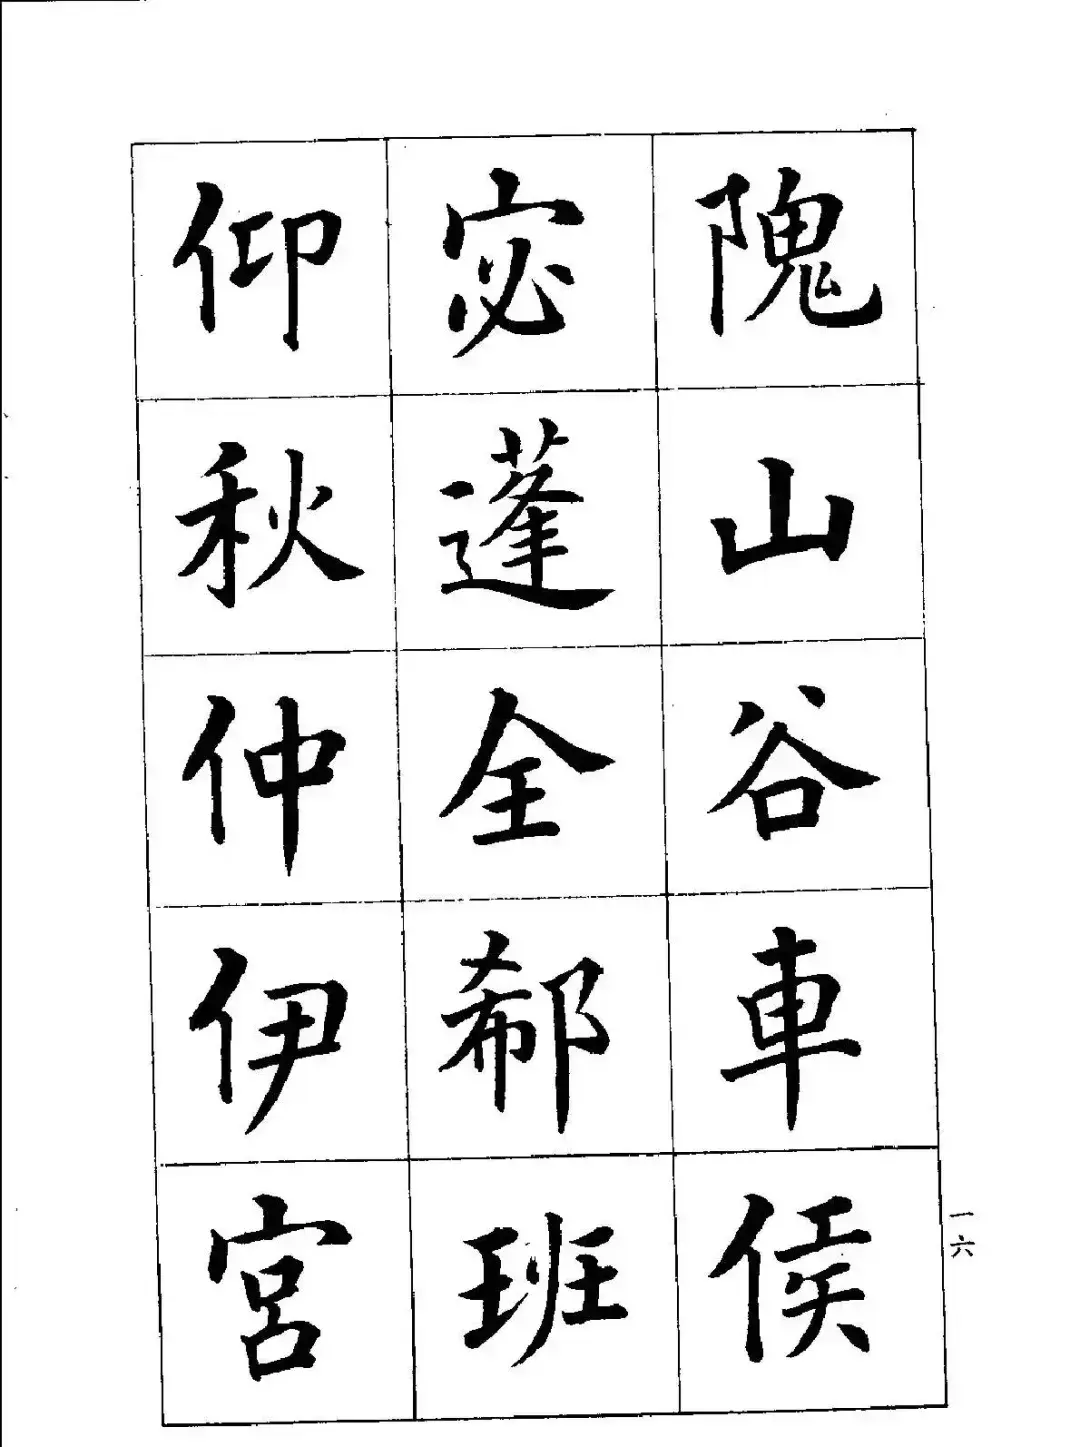 隗山谷車侯
宓蓬全郗班
仰秋仲伊宮
一六